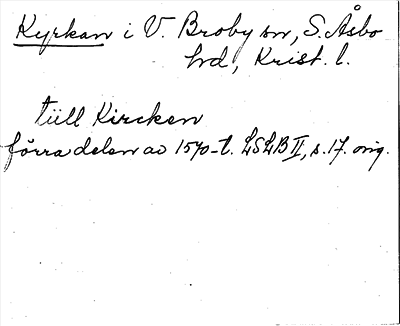 Kyrkan i V. Broby sn, S. Åsbo
hd, Krist. l.
tüll Kircken
förra delen av 1570-t. LSLB II, s. 17. orig.